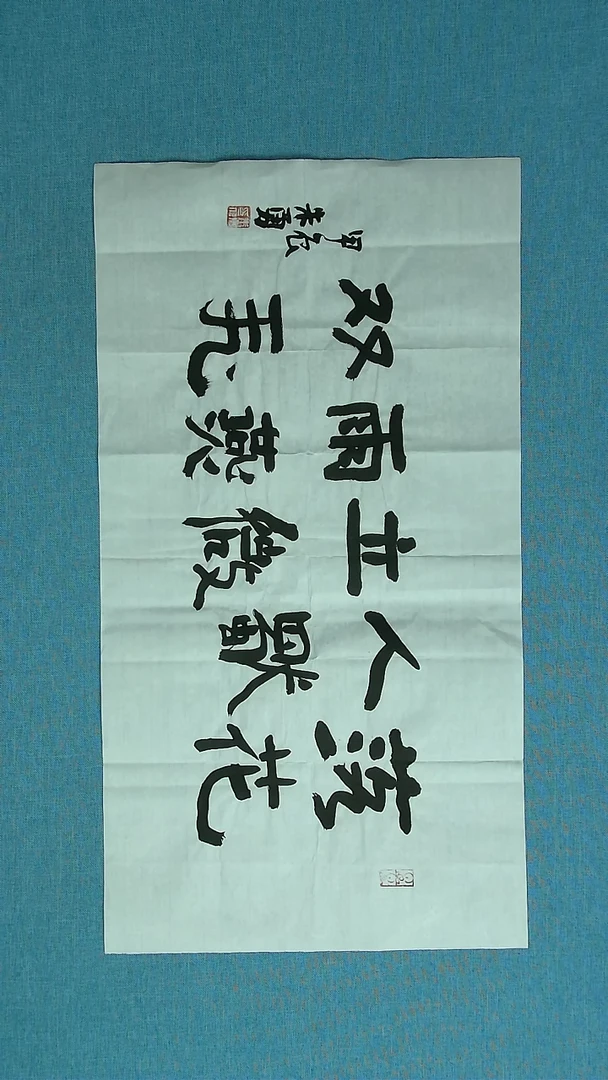 落花
人獨
立微
雨燕
双飞
甲辰
朱勇